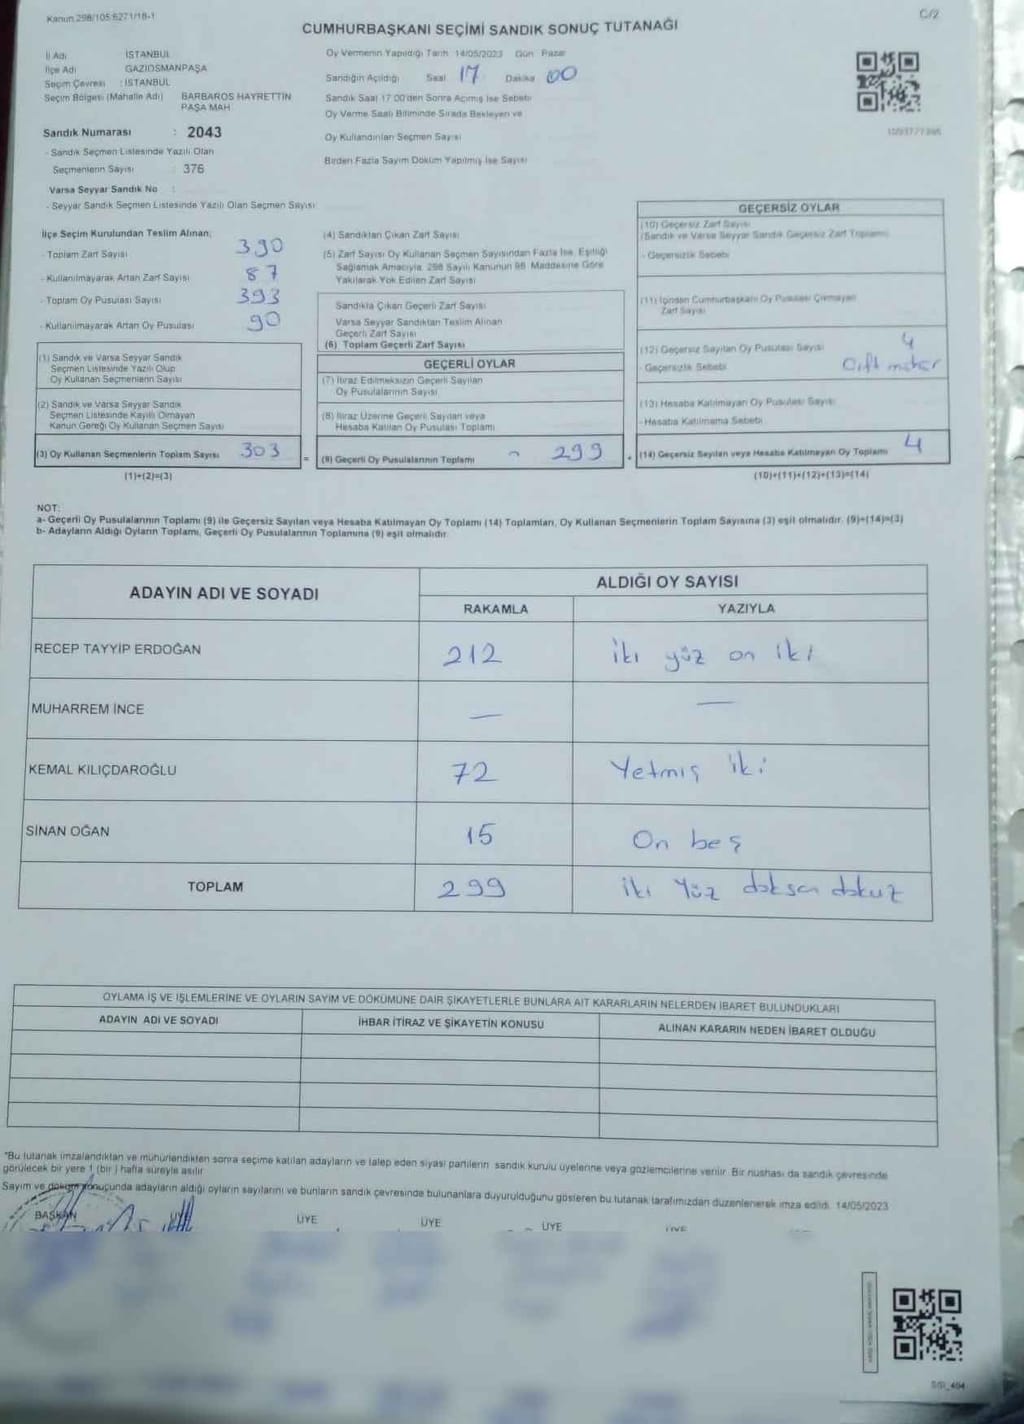 Kanun 298/105 6271/18-1
C/2
CUMHURBAŞKANI SEÇİMİ SANDIK SONUÇ TUTANAĞI
İl Adı : İSTANBUL
İlçe Adı GAZİOSMANPAŞA
Seçim Çevresi : İSTANBUL
Seçim Bölgesi (Mahalle Adı) BARBAROS HAYRETTİN PAŞA MAH.
Sandık Numarası : 2043
- Sandık Seçmen Listesinde Yazılı Olan
Seçmenlerin Sayısı : 376
Varsa Seyyar Sandık No :
- Seyyar Sandık Seçmen Listesinde Yazılı Olan Seçmen Sayısı
Oy Vermenin Yapıldığı Tarih 14/05/2023 Gün Pazar
Sandığın Açıldığı Saat 17 Dakika 00
Sandık Saat 17:00'den Sonra Açılmış İse Sebebi
Oy Verme Saati Bitiminde Sırada Bekleyen ve
Oy Kullandırılan Seçmen Sayısı
Birden Fazla Sayım Döküm Yapılmış İse Sayısı
İlçe Seçim Kurulundan Teslim Alınan;
- Toplam Zarf Sayısı 390
- Kullanılmayarak Artan Zarf Sayısı 87
- Toplam Oy Pusulası Sayısı 393
- Kullanılmayarak Artan Oy Pusulası 90
(1) Sandık ve Varsa Seyyar Sandık
Seçmen Listesinde Yazılı Olup
Oy Kullanan Seçmenlerin Sayısı
(2) Sandık ve Varsa Seyyar Sandık
Seçmen Listesinde Kayıtlı Olmayan
Kanun Gereği Oy Kullanan Seçmen Sayısı
(3) Oy Kullanan Seçmenlerin Toplam Sayısı 303
(1)+(2)=(3)
(4) Sandıktan Çıkan Zarf Sayısı
(5) Zarf Sayısı Oy Kullanan Seçmen Sayısından Fazla İse, Eşitliği
Sağlamak Amacıyla, 298 Sayılı Kanunun 98. Maddesine Göre
Yakılarak Yok Edilen Zarf Sayısı
Sandıkta Çıkan Geçerli Zarf Sayısı
Varsa Seyyar Sandıktan Teslim Alınan
Geçerli Zarf Sayısı
(6) Toplam Geçerli Zarf Sayısı
GEÇERLİ OYLAR
(7) İtiraz Edilmeksizin Geçerli Sayılan
Oy Pusulalarının Sayısı
(8) İtiraz Üzerine Geçerli Sayılan veya
Hesaba Katılan Oy Pusulası Toplamı
= (9) Geçerli Oy Pusulalarının Toplamı 299
GEÇERSİZ OYLAR
(10) Geçersiz Zarf Sayısı
(Sandık ve Varsa Seyyar Sandık Geçersiz Zarf Toplamı)
- Geçersizlik Sebebi
(11) İçinden Cumhurbaşkanı Oy Pusulası Çıkmayan
Zarf Sayısı
(12) Geçersiz Sayılan Oy Pusulası Sayısı 4
- Geçersizlik Sebebi Çift mühür
(13) Hesaba Katılmayan Oy Pusulası Sayısı
- Hesaba Katılmama Sebebi
+ (14) Geçersiz Sayılan veya Hesaba Katılmayan Oy Toplamı 4
(10)+(11)+(12)+(13)=(14)
NOT:
a- Geçerli Oy Pusulalarının Toplamı (9) ile Geçersiz Sayılan veya Hesaba Katılmayan Oy Toplamı (14) Toplamları, Oy Kullanan Seçmenlerin Toplam Sayısına (3) eşit olmalıdır. (9)+(14)=(3)
b- Adayların Aldığı Oyların Toplamı, Geçerli Oy Pusulalarının Toplamına (9) eşit olmalıdır.
ADAYIN ADI VE SOYADI
ALDIĞI OY SAYISI
RAKAMLA YAZIYLA
RECEP TAYYİP ERDOĞAN 212 iki yüz on iki
MUHARREM İNCE — —
KEMAL KILIÇDAROĞLU 72 Yetmiş iki
SİNAN OĞAN 15 On beş
TOPLAM 299 iki Yüz doksan dokuz
OYLAMA İŞ VE İŞLEMLERİNE VE OYLARIN SAYIM VE DÖKÜMÜNE DAİR ŞİKAYETLERLE BUNLARA AİT KARARLARIN NELERDEN İBARET BULUNDUKLARI
ADAYIN ADI VE SOYADI İHBAR İTİRAZ VE ŞİKAYETİN KONUSU ALINAN KARARIN NEDEN İBARET OLDUĞU
"Bu tutanak imzalandıktan ve mühürlendikten sonra seçime katılan adayların ve talep eden siyasi partilerin sandık kurulu üyelerine veya gözlemcilerine verilir. Bir nüshası da sandık çevresinde
görülecek bir yere 1 (bir ) hafta süreyle asılır
Sayım ve döküm sonuçunda adayların aldığı oyların sayılarını ve bunların sandık çevresinde bulunanlara duyurulduğunu gösteren bu tutanak tarafımızdan düzenlenerek imza edildi. 14/05/2023
BAŞKAN ÜYE ÜYE ÜYE ÜYE